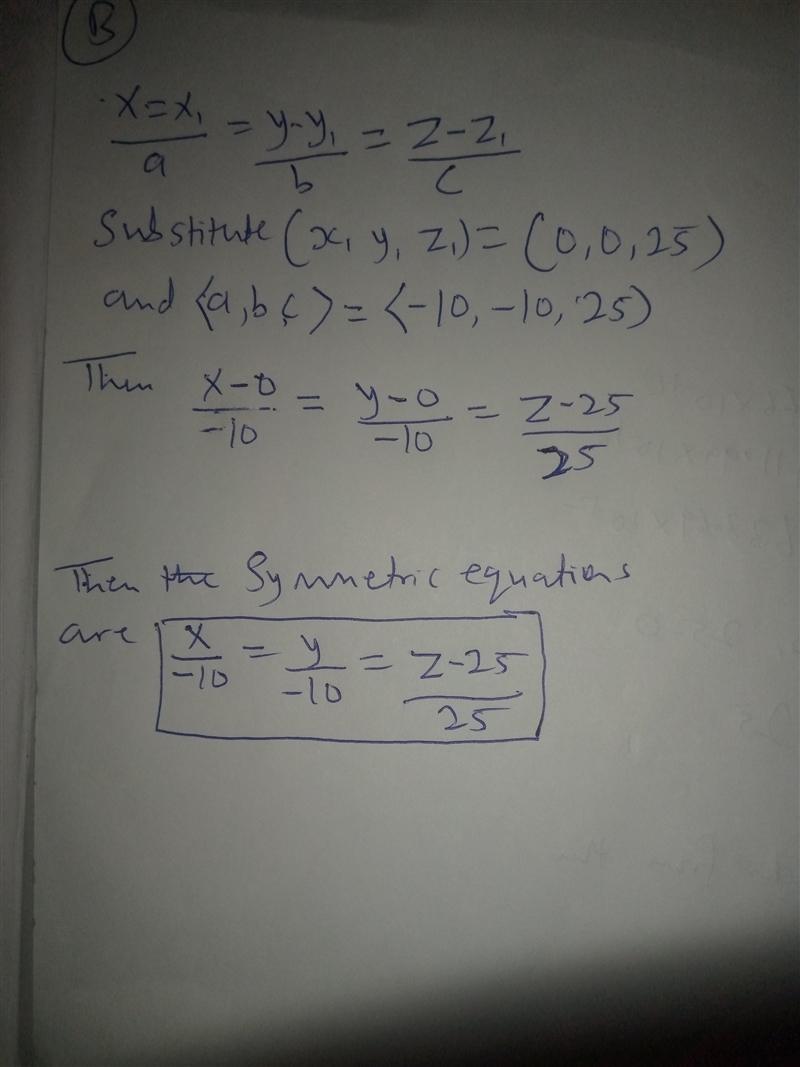 B
x=x₁/a = y-y₁/b = z-z₁/c
Substitute (x₁ y₁ z₁) = (0, 0, 25)
and ⟨a, b, c⟩ = ⟨-10, -10, 25)
Then x-0/-10 = y-0/-10 = z-25/25
Then the Symmetric equations
are x/-10 = y/-10 = z-25/25